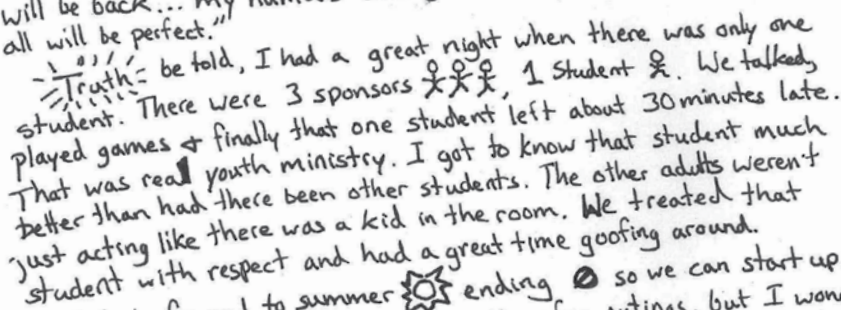 will be back... my
all will be perfect."
Truth be told, I had a great night when there was only one
student. There were 3 sponsors, 1 Student. We talked,
played games + finally that one student left about 30 minutes late.
That was real youth ministry. I got to know that student much
better than had there been other students. The other adults weren't
just acting like there was a kid in the room. We treated that
student with respect and had a great time goofing around.
to summer ending so we can start up
but I won